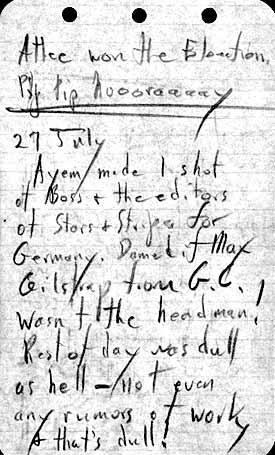 Attlee won the Election,
Pip Pip hooooraaaay
27 July
Ayem/made 1 shot
of Boss + the editors
of Stars & Stripes for
Germany. Damed if Max
Gilstrap from G.I. !
wasn't the headman!
Rest of day was dull
as hell — not even
any rumors of work,
& that's dull!